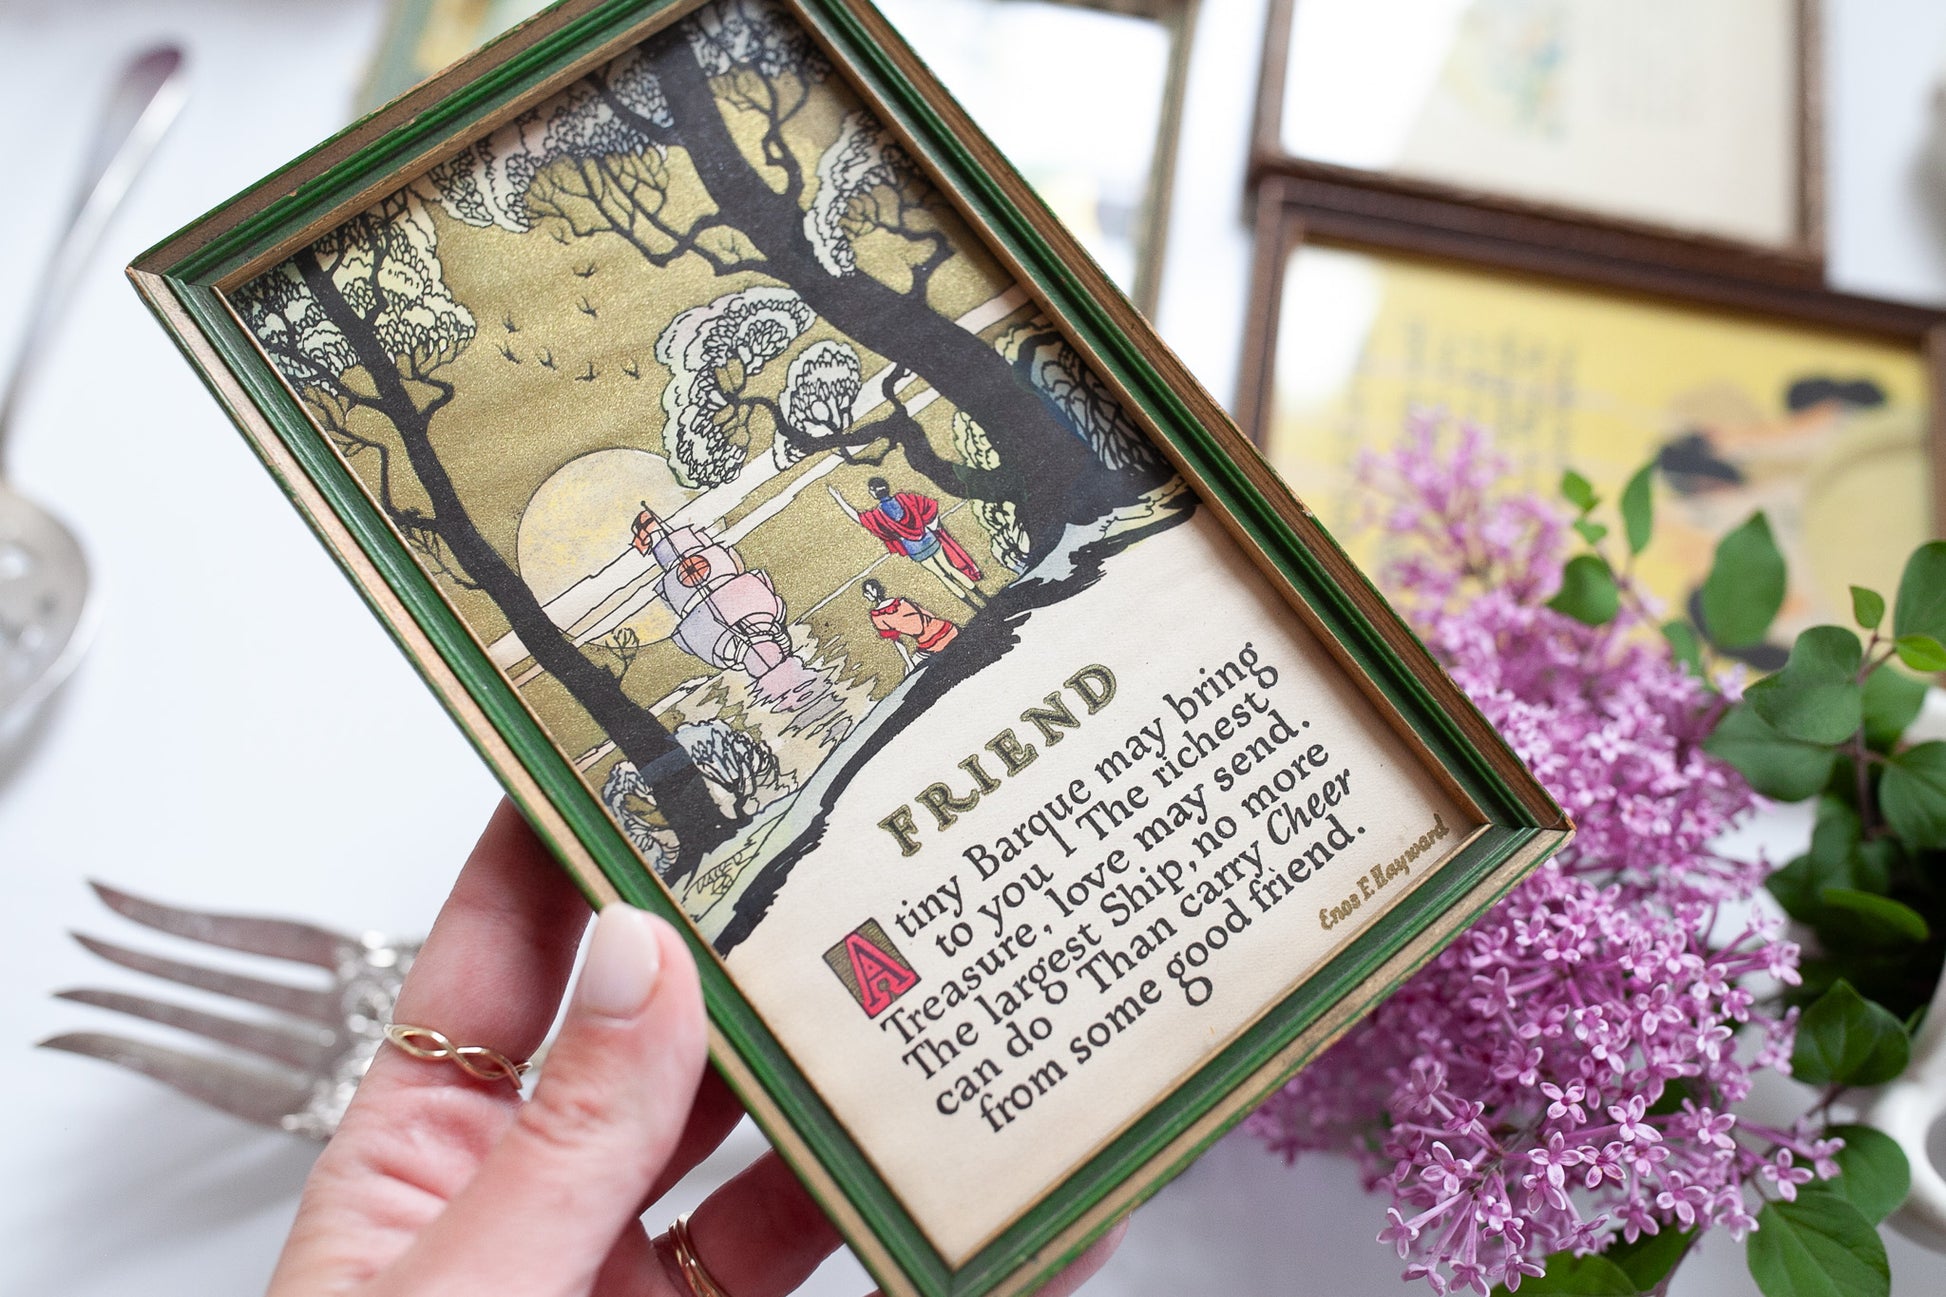 FRIEND
A tiny Barque may bring
to you | The richest
Treasure, love may send.
The largest Ship, no more
can do Than carry Cheer
from some good friend.
Enos F. Hayward